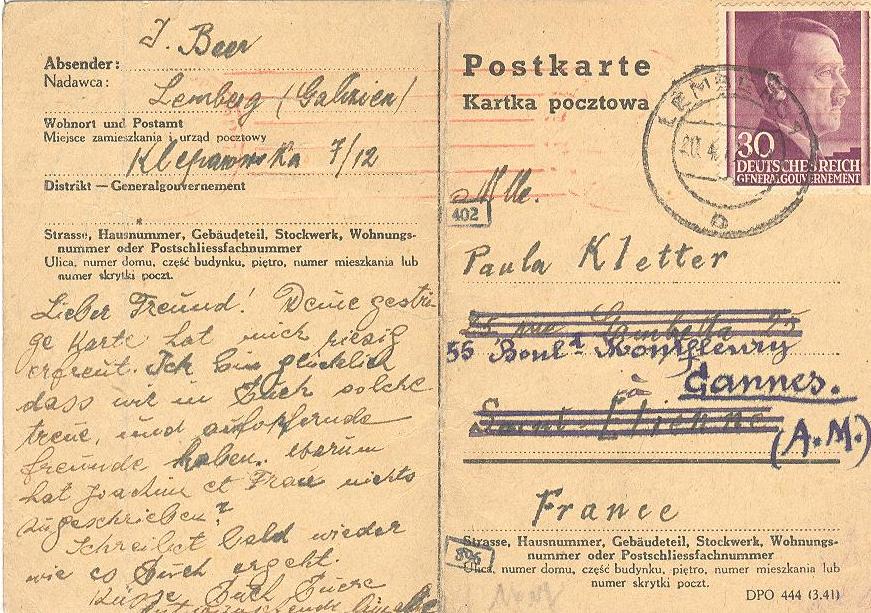 J. Beer
Absender:
Nadawca:
Lemberg (Galizien)
Wohnort und Postamt
Miejsce zamieszkania i urząd pocztowy
Kleparowska 7/12
Distrikt — Generalgouvernement
Strasse, Hausnummer, Gebäudeteil, Stockwerk, Wohnungs-
nummer oder Postschliessfachnummer
Ulica, numer domu, część budynku, piętro, numer mieszkania lub
numer skrytki poczt.
Lieber Freund! Deine gestri-
ge Karte hat mich riesig
erfreut. Ich bin glücklich
dass wir in Euch solche
treue, und aufopfernde
Freunde haben. Warum
hat Joachim et Frau nichts
zugeschrieben?
Schreibet bald wieder
wie es Euch ergeht.
Küsse Euch Euere
Postkarte
Kartka pocztowa
LEMBERG
20.4.
30
DEUTSCHES REICH
GENERALGOUVERNEMENT
Mlle.
402
Paula Kletter
25 rue Gambetta 25
55 Boul.d Montfleury
à Cannes.
Saint-Etienne
(A.M.)
France
Strasse, Hausnummer, Gebäudeteil, Stockwerk, Wohnungs-
nummer oder Postschliessfachnummer
Ulica, numer domu, część budynku, piętro, numer mieszkania lub
numer skrytki poczt.
DPO 444 (3.41)